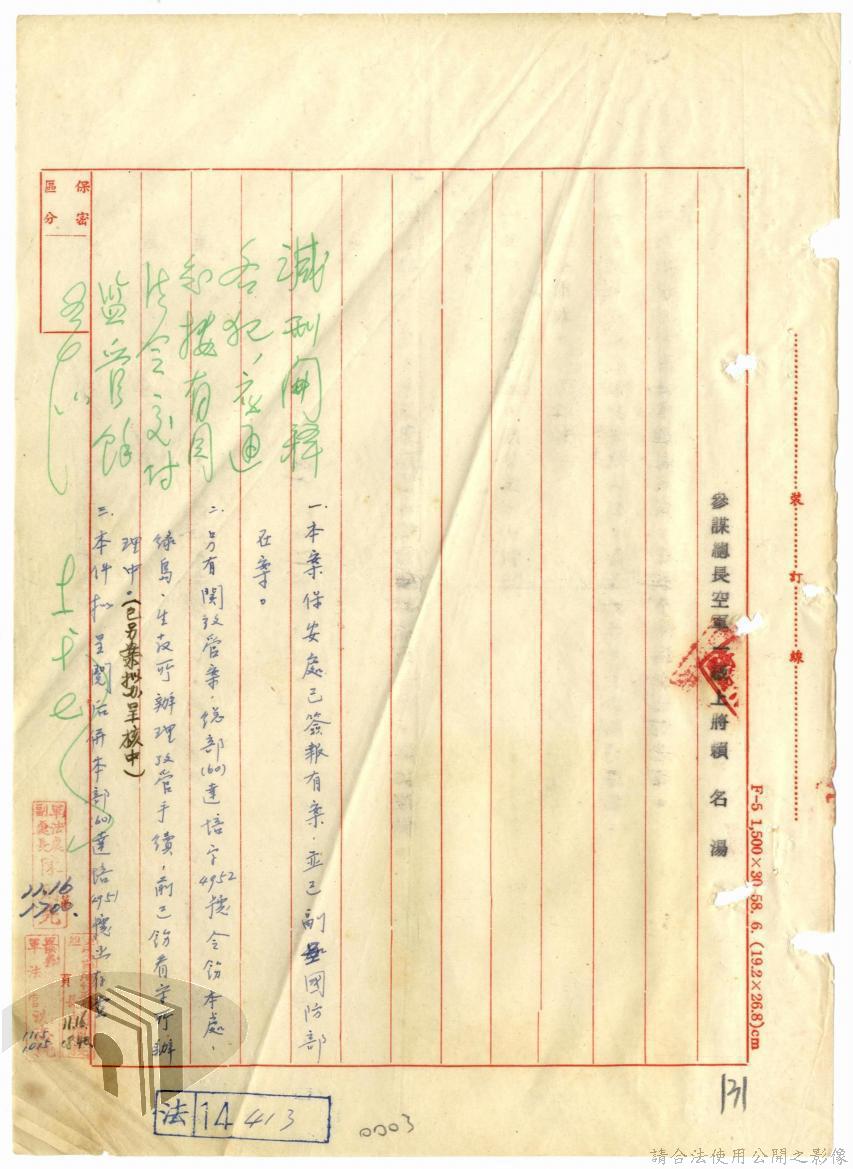 裝訂線
F-5 1,500×30 58. 6. (19.2×26.8)cm
參謀總長空軍一級上將賴名湯
131
一、本案保安處已簽報有案,並已副呈國防部
在案。
二、另有關移管案,總部(60)達培字4952號令飭本處、
綠島、生教所辦理移管手續,前已飭看守所辦
理中。(已另案擬辦呈核中)
三、本件擬呈閱後併本部(60)達培4951號出存查
減刑開釋
各犯,應通
知接有關
法令交付
監管餘
保密
區分
軍法處
副處長
11.16
1700.
軍法官
11.16.
08.40
1115
1015
法 14 413
0003
請合法使用公開之影像